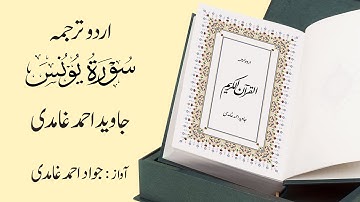 اردو ترجمہ
سورۃ یونس
جاوید احمد غامدی
آواز : جواد احمد غامدی
اردو ترجمہ
القرآن الکریم
جاوید احمد غامدی